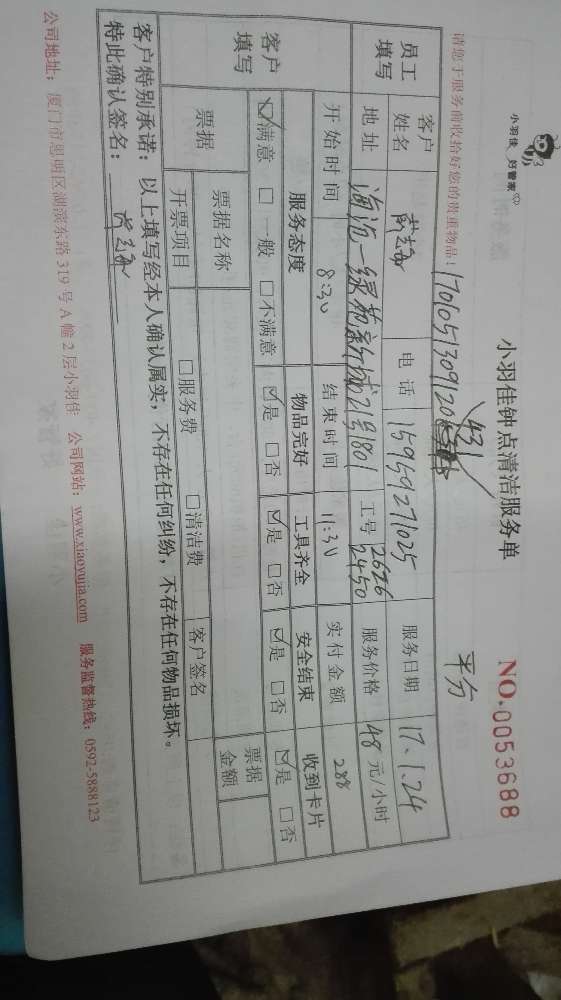 小羽佳 好管家
小羽佳钟点清洁服务单
NO.0053688
请您于服务前收拾好您的贵重物品！
431
平分
员工填写
客户姓名
电话 15959271025
服务日期 17.1.24
地址 海沧一绿苑新城21号1801
工号 2626 2450
服务价格 48元/小时
开始时间 8:30
结束时间 11:30
实付金额 288
客户填写
服务态度 物品完好 工具齐全 安全结束 收到卡片
☑满意 □一般 □不满意 ☑是 □否 ☑是 □否 ☑是 □否 ☑是 □否
票据 票据名称 票据金额
开票项目 □服务费 □清洁费 客户签名
客户特别承诺：以上填写经本人确认属实，不存在任何纠纷，不存在任何物品损坏。
特此确认签名：
公司地址：厦门市思明区湖滨东路319号A幢2层小羽佳 公司网站：www.xiaoyujia.com 服务监督热线：0592-5888123